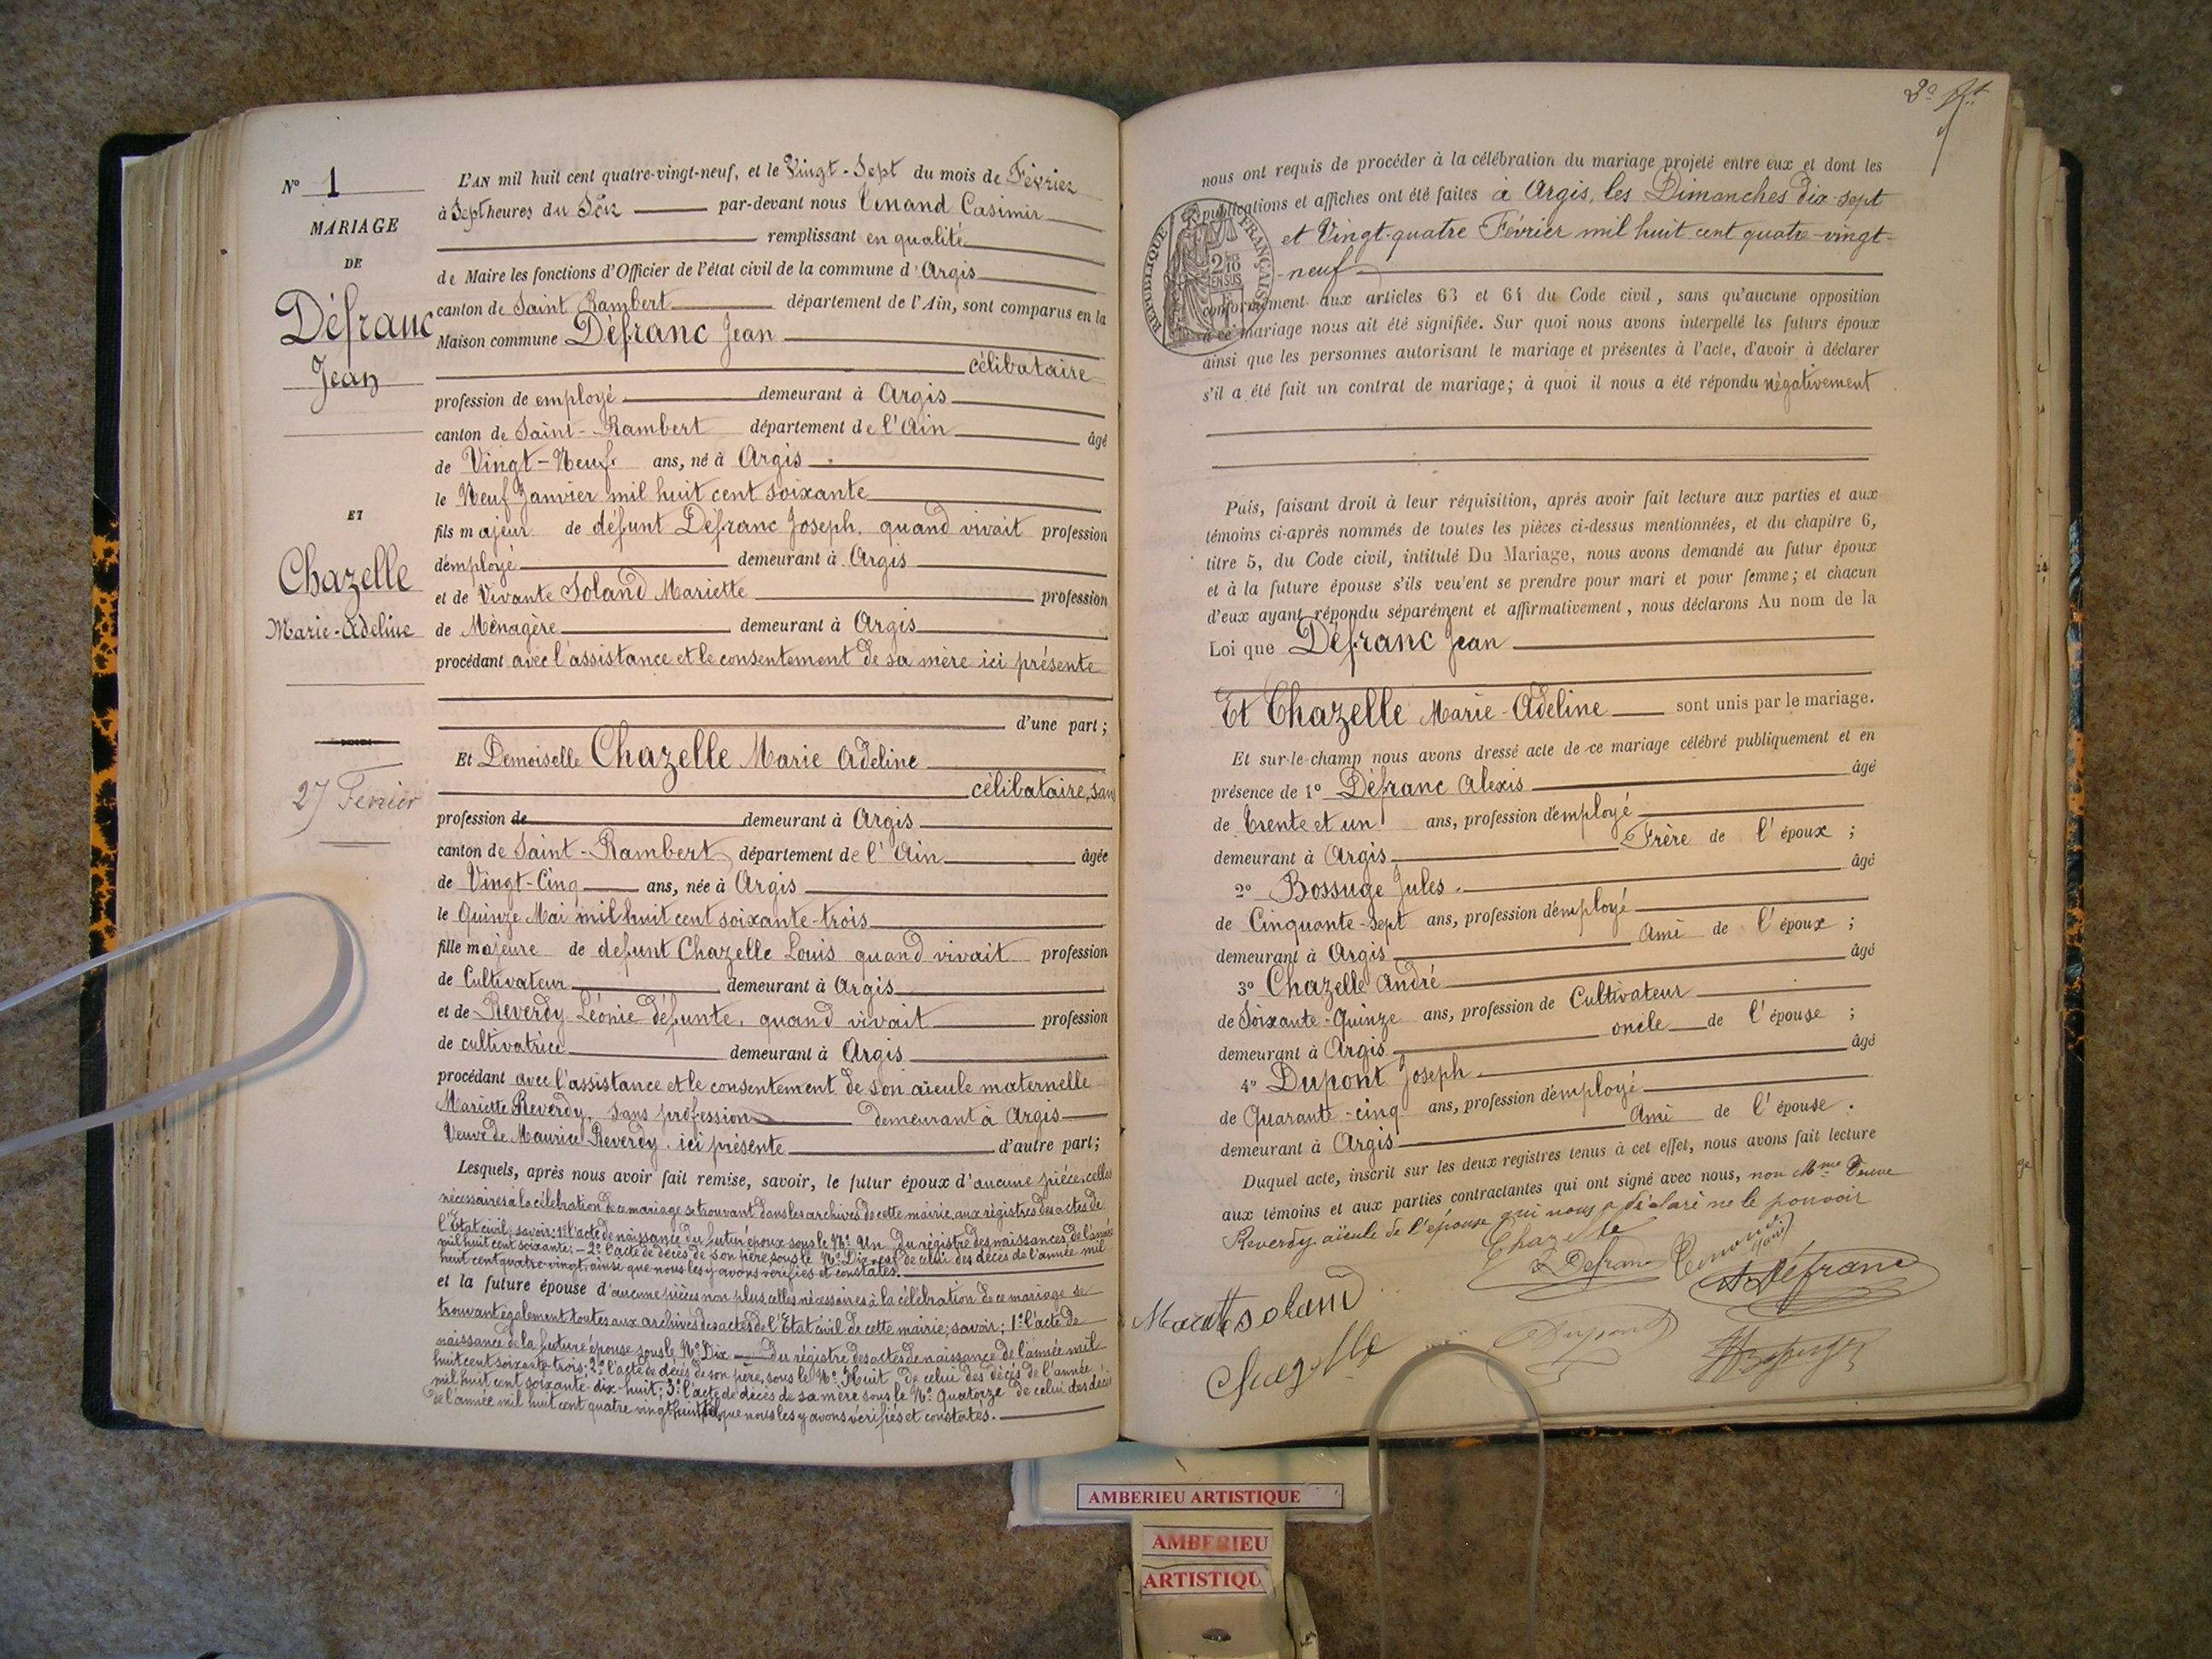 N° 1
MARIAGE
DE
Défranc
Jean
ET
Chazelle
Marie-Adeline
27 Fevrier
L'AN mil huit cent quatre-vingt-neuf, et le Vingt-Sept du mois de Février
à Sept heures du Soir par-devant nous Casimir
remplissant en qualité
de Maire les fonctions d'Officier de l'état civil de la commune d'Argis
canton de Saint Rambert département de l'Ain, sont comparus en la
Maison commune Défranc Jean
célibataire
profession de employé demeurant à Argis
canton de Saint-Rambert département de l'Ain âgé
de Vingt-Neuf ans, né à Argis
le Neuf Janvier mil huit cent soixante
fils majeur de défunt Défranc Joseph, quand vivait profession
d'employé demeurant à Argis
et de Vivante Soland Mariette profession
de Ménagère demeurant à Argis
procédant avec l'assistance et le consentement de sa mère ici présente
d'une part;
Et Demoiselle Chazelle Marie Adeline
célibataire, sans
profession de demeurant à Argis
canton de Saint-Rambert département de l'Ain âgée
de Vingt-Cinq ans, née à Argis
le Quinze Mai mil huit cent soixante-trois
fille majeure de defunt Chazelle Louis quand vivait profession
de Cultivateur demeurant à Argis
et de Reverdy Léonie défunte, quand vivait profession
de cultivatrice demeurant à Argis
procédant avec l'assistance et le consentement de son aïeule maternelle
Mariette Reverdy, sans profession demeurant à Argis
Veuve de Maurice Reverdy. ici présente d'autre part;
Lesquels, après nous avoir fait remise, savoir, le futur époux d'aucune pièce, celles
nécessaires à la célébration de ce mariage se trouvant dans les archives de cette mairie, aux régistres des actes de
l'Etat civil, savoir: 1° l'acte de naissance du futur époux sous le N° Un du régistre des naissances de l'année
mil huit cent soixante; - 2° l'acte de décès de son père, sous le N° Dix-neuf de celui des décès de l'année mil
huit cent quatre-vingt, ainsi que nous les y avons vérifiés et constatés.
et la future épouse d'aucune pièces non plus, celles nécessaires à la célébration de ce mariage se
trouvant également toutes aux archives des actes de l'Etat civil de cette mairie; savoir; 1° l'acte de
naissance de la future épouse sous le N° Dix du régistre des actes de naissance de l'année mil
huit cent soixante-trois; 2° l'acte de décès de son père, sous le N° Huit de celui des décès de l'année
mil huit cent soixante-dix-huit; 3° l'acte de décès de sa mère sous le N° Quatorze de celui des décès
de l'année mil huit cent quatre vingt que nous les y avons vérifiés et constatés.
nous ont requis de procéder à la célébration du mariage projeté entre eux et dont les
publications et affiches ont été faites à Argis, les Dimanches dix-sept
et Vingt-quatre Février mil huit cent quatre-vingt-
neuf
conformément aux articles 63 et 64 du Code civil, sans qu'aucune opposition
à ce mariage nous ait été signifiée. Sur quoi nous avons interpellé les futurs époux
ainsi que les personnes autorisant le mariage et présentes à l'acte, d'avoir à déclarer
s'il a été fait un contrat de mariage; à quoi il nous a été répondu négativement
RÉPUBLIQUE FRANÇAISE
EN SUS
Puis, faisant droit à leur réquisition, après avoir fait lecture aux parties et aux
témoins ci-après nommés de toutes les pièces ci-dessus mentionnées, et du chapitre 6,
titre 5, du Code civil, intitulé Du Mariage, nous avons demandé au futur époux
et à la future épouse s'ils veulent se prendre pour mari et pour femme; et chacun
d'eux ayant répondu séparément et affirmativement, nous déclarons Au nom de la
Loi que Défranc Jean
Et Chazelle Marie-Adeline sont unis par le mariage.
Et sur-le-champ nous avons dressé acte de ce mariage célébré publiquement et en
présence de 1° Défranc Alexis âgé
de Trente et un ans, profession d'employé
demeurant à Argis Frère de l'époux;
2° Bossuge Jules. âgé
de Cinquante-sept ans, profession d'employé
demeurant à Argis Ami de l'époux;
3° Chazelle André âgé
de Soixante-Quinze ans, profession de Cultivateur
demeurant à Argis oncle de l'épouse;
4° Dupont Joseph âgé
de Quarante-cinq ans, profession d'employé
demeurant à Argis Ami de l'épouse.
Duquel acte, inscrit sur les deux registres tenus à cet effet, nous avons fait lecture
aux témoins et aux parties contractantes qui ont signé avec nous, non Mme Veuve
Reverdy aïeule de l'épouse qui nous a déclaré ne le pouvoir
Chazelle
J Defranc
A Défranc
soland
Dupont
AMBERIEU ARTISTIQUE
AMBERIEU
ARTISTIQU